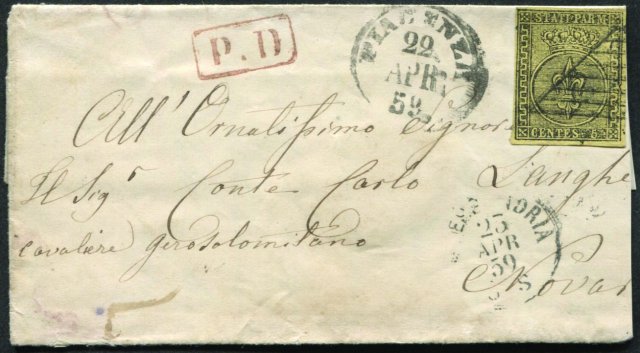 P.D
PIACENZA
22
APR.
59.
STATI PARM.
CENTES. 5
All' Ornatissimo Signore
Il Sigr Conte Carlo Langhe
cavaliere gerosolomitano
Novar
23
APR
59